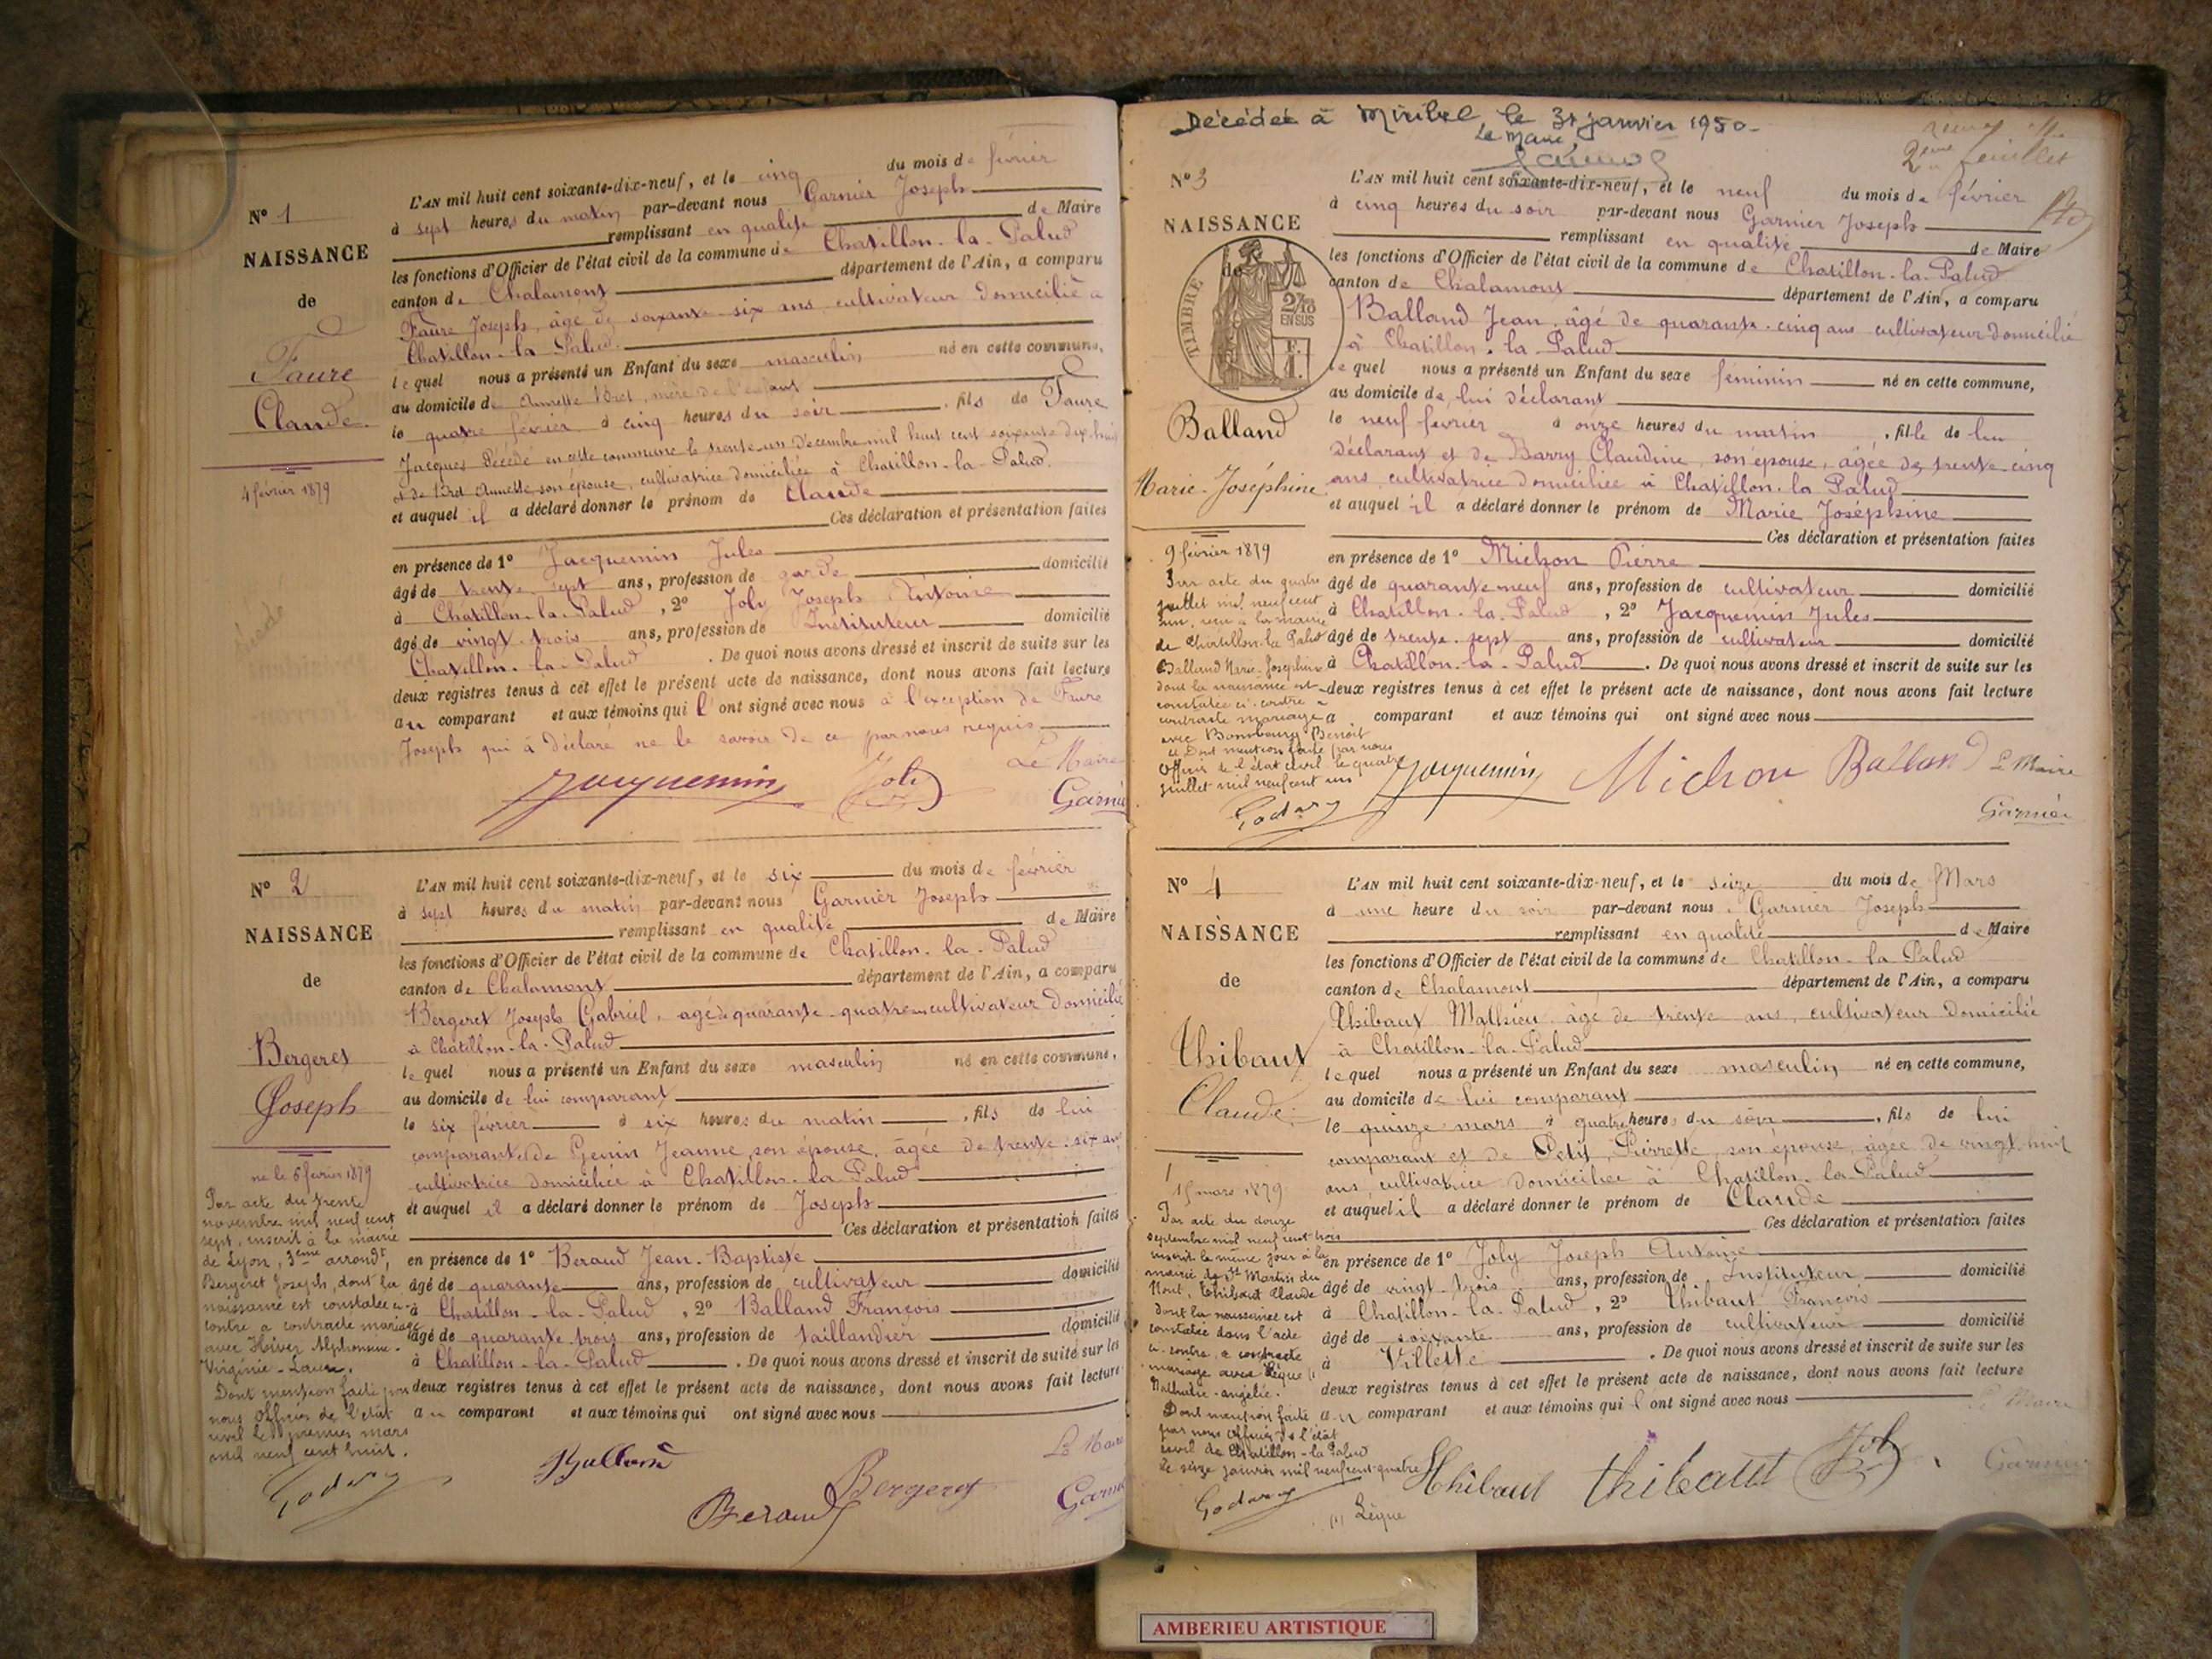 N° 1
NAISSANCE
de
Faure
Claude
4 février 1879
L'AN mil huit cent soixante-dix-neuf, et le cinq du mois de février
à sept heures du matin par-devant nous Garnier Joseph
remplissant en qualité de Maire
les fonctions d'Officier de l'état civil de la commune de Chatillon-la-Palud
canton de Chalamont département de l'Ain, a comparu
Faure Joseph, âgé de soixante-six ans cultivateur domicilié à
Chatillon-la-Palud.
lequel nous a présenté un Enfant du sexe masculin né en cette commune,
au domicile de Annette Bret, mère de l'enfant
le quatre février à cinq heures du soir, fils de Faure
Jacques décédé en cette commune le trente-un Décembre mil huit cent soixante dix huit
et de Bret Annette son épouse, cultivatrice domiciliée à Chatillon-la-Palud.
et auquel il a déclaré donner le prénom de Claude
Ces déclaration et présentation faites
en présence de 1° Jacquemin Jules
âgé de trente-sept ans, profession de garde domicilié
à Chatillon-la-Palud, 2° Joly Joseph Antoine
âgé de vingt-trois ans, profession de Instituteur domicilié
Chatillon-la-Palud. De quoi nous avons dressé et inscrit de suite sur les
deux registres tenus à cet effet le présent acte de naissance, dont nous avons fait lecture
au comparant et aux témoins qui l'ont signé avec nous à l'exception de Faure
Joseph qui à déclaré ne le savoir de ce par nous requis
Jacquemin Joly Le Maire
Garnier
N° 2
NAISSANCE
de
Bergeret
Joseph
né le 6 février 1879
Par acte du trente
novembre mil neuf cent
sept, inscrit à la mairie
de Lyon, 3ème arrondt,
Bergeret Joseph, dont la
naissance est constatée ci-
contre a contracté mariage
avec Hiver Alphonsine-
Virginie-Laure.
Dont mention faite par
nous Officier de l'état
civil le premier mars
mil neuf cent huit.
Godary
L'AN mil huit cent soixante-dix-neuf, et le six du mois de février
à sept heures du matin par-devant nous Garnier Joseph
remplissant en qualité de Maire
les fonctions d'Officier de l'état civil de la commune de Chatillon-la-Palud
canton de Chalamont département de l'Ain, a comparu
Bergeret Joseph Gabriel, âgé de quarante-quatre ans cultivateur domicilié
à Chatillon-la-Palud
lequel nous a présenté un Enfant du sexe masculin né en cette commune,
au domicile de lui comparant
le six février à six heures du matin, fils de lui
comparant et de Genin Jeanne son épouse, âgée de trente-six ans
cultivatrice domiciliée à Chatillon-la-Palud
et auquel il a déclaré donner le prénom de Joseph
Ces déclaration et présentation faites
en présence de 1° Beraud Jean-Baptiste
âgé de quarante ans, profession de cultivateur domicilié
à Chatillon-la-Palud, 2° Balland François
âgé de quarante-trois ans, profession de taillandier domicilié
à Chatillon-la-Palud. De quoi nous avons dressé et inscrit de suite sur les
deux registres tenus à cet effet le présent acte de naissance, dont nous avons fait lecture
au comparant et aux témoins qui ont signé avec nous
Balland Beraud Bergeret Le Maire
Garnier
Décédée à Miribel le 31 janvier 1950-
Le Maire
2ème feuillet
N° 3
NAISSANCE
de
TIMBRE
2/10
EN SUS
F.
1.
Balland
Marie-Joséphine
9 février 1879
Par acte du quatre
juillet mil neuf cent
un, reçu à la mairie
de Chatillon-la-Palud
Balland Marie-Joséphine
dont la naissance est
constatée ci-contre a
contracté mariage
avec Bombourg Benoit
Dont mention faite par nous
Officier de l'état civil le quatre
juillet mil neuf cent un
Godary
L'AN mil huit cent soixante-dix-neuf, et le neuf du mois de février
à cinq heures du soir par-devant nous Garnier Joseph
remplissant en qualité de Maire
les fonctions d'Officier de l'état civil de la commune de Chatillon-la-Palud
canton de Chalamont département de l'Ain, a comparu
Balland Jean, âgé de quarante-cinq ans cultivateur domicilié
à Chatillon-la-Palud
lequel nous a présenté un Enfant du sexe féminin né en cette commune,
au domicile de lui déclarant
le neuf février à onze heures du matin, fille de lui
déclarant et de Barry Claudine, son épouse, âgée de trente-cinq
ans, cultivatrice domiciliée à Chatillon-la Palud
et auquel il a déclaré donner le prénom de Marie Joséphine
Ces déclaration et présentation faites
en présence de 1° Michon Pierre
âgé de quarante neuf ans, profession de cultivateur domicilié
à Chatillon-la-Palud, 2° Jacquemin Jules
âgé de trente-sept ans, profession de cultivateur domicilié
à Chatillon-la-Palud. De quoi nous avons dressé et inscrit de suite sur les
deux registres tenus à cet effet le présent acte de naissance, dont nous avons fait lecture
a comparant et aux témoins qui ont signé avec nous
Jacquemin Michon Balland Le Maire
Garnier
N° 4
NAISSANCE
de
Thibaut
Claude
15 mars 1879
Par acte du douze
septembre mil neuf cent trois
inscrit le même jour à la
mairie de St Martin du
Mont, Thibaut Claude
dont la naissance est
constatée dans l'acte
ci-contre, a contracté
mariage avec Lèque (1)
Nathalie-angélie.
Dont mention faite
par nous officier de l'état
civil de Chatillon-la Palud
le seize janvier mil neuf cent quatre
Godary
(1) Lèque
L'AN mil huit cent soixante-dix-neuf, et le seize du mois de Mars
à une heure du soir par-devant nous Garnier Joseph
remplissant en qualité de Maire
les fonctions d'Officier de l'état civil de la commune de Chatillon-la Palud
canton de Chalamont département de l'Ain, a comparu
Thibaut Mathieu âgé de trente ans, cultivateur Domicilié
à Chatillon-la-Palud
lequel nous a présenté un Enfant du sexe masculin né en cette commune,
au domicile de lui comparant
le quinze mars à quatre heures du soir, fils de lui
comparant et de Petit Pierrette, son épouse, âgée de vingt huit
ans, cultivatrice domiciliée à Chatillon-la-Palud
et auquel il a déclaré donner le prénom de Claude
Ces déclaration et présentation faites
en présence de 1° Joly Joseph Antoine
âgé de vingt-trois ans, profession de Instituteur domicilié
à Chatillon-la-Palud, 2° Thibaut François
âgé de soixante ans, profession de cultivateur domicilié
à Villette. De quoi nous avons dressé et inscrit de suite sur les
deux registres tenus à cet effet le présent acte de naissance, dont nous avons fait lecture
au comparant et aux témoins qui l'ont signé avec nous
Le Maire
Thibaut thibaut Joly Garnier
AMBERIEU ARTISTIQUE